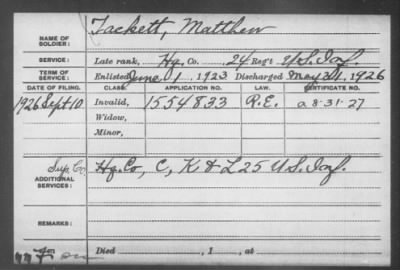 NAME OF SOLDIER: Tackett, Matthew
SERVICE: Late rank, Hq. Co. 24 Reg't U.S. Inf.
TERM OF SERVICE: Enlisted June 1, 1923 Discharged May 31, 1926
DATE OF FILING. CLASS. APPLICATION NO. LAW. CERTIFICATE NO.
1926 Sept 10 Invalid, 1554833 R.E. a 8-31-27
Widow,
Minor,
Sup. Co.
ADDITIONAL SERVICES: Hq. Co, C, K & L 25 U.S. Inf.
REMARKS:
Died , 1 , at